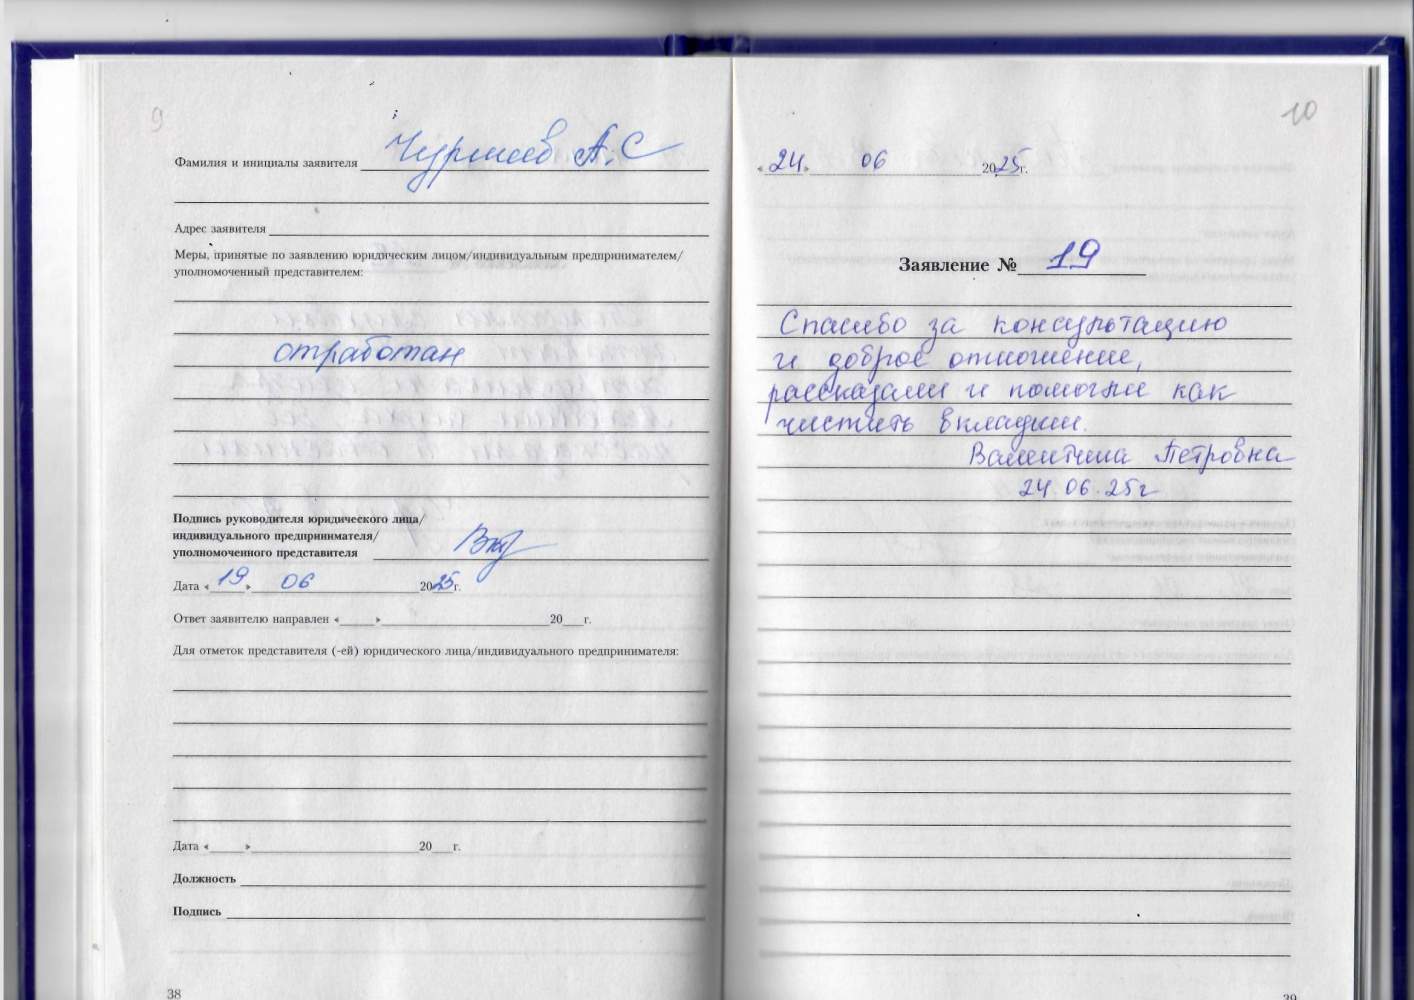 9
Фамилия и инициалы заявителя А.С
Адрес заявителя
Меры, принятые по заявлению юридическим лицом/индивидуальным предпринимателем/
уполномоченный представителем:
отработан
Подпись руководителя юридического лица/
индивидуального предпринимателя/
уполномоченного представителя
Дата «19» 06 2025г.
Ответ заявителю направлен «____»____20__г.
Для отметок представителя (-ей) юридического лица/индивидуального предпринимателя:
Дата «____»____20__г.
Должность
Подпись
38
10
«24» 06 2025г.
Заявление № 19
Спасибо за консультацию
и доброе отношение,
рассказали и помогли как
чистить вкладки.
Валентина Петровна
24.06.25г
39